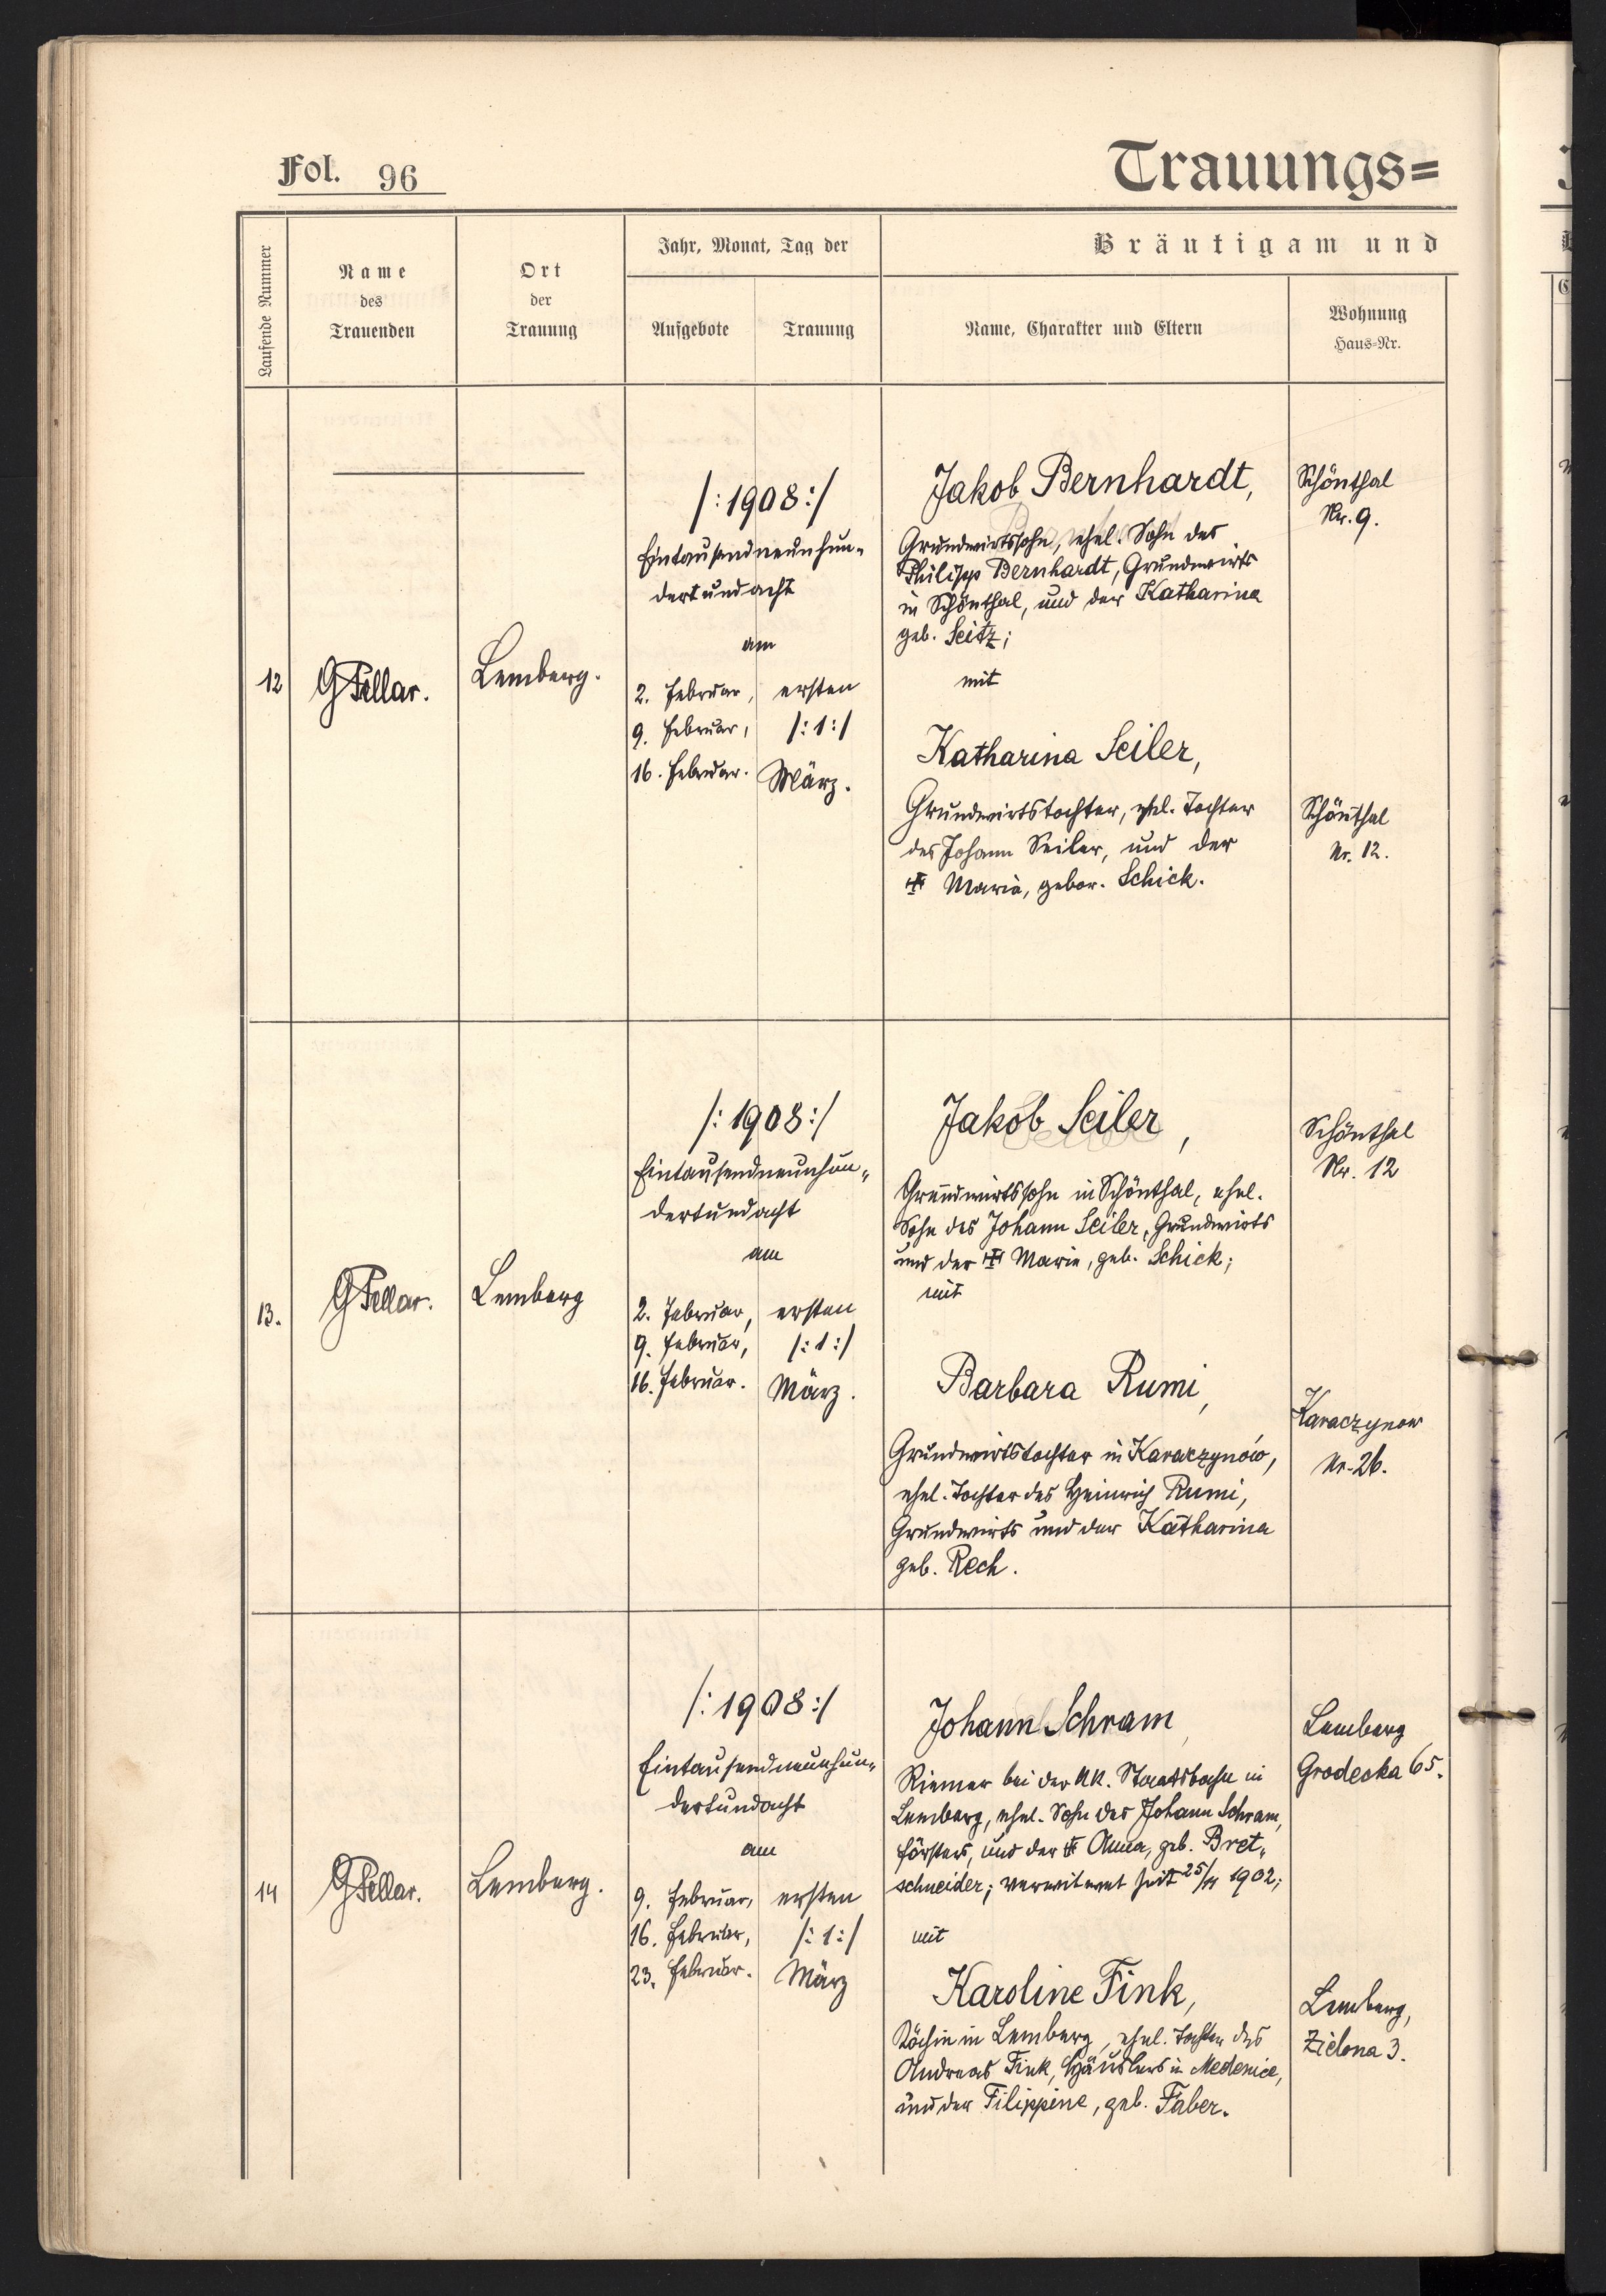 Fol. 96
Trauungs=
Laufende Nummer
Name
des
Trauenden
Ort
der
Trauung
Jahr, Monat, Tag der
Aufgebote
Trauung
Bräutigam und
Name, Charakter und Eltern
Wohnung
Haus=Nr.
12
GFellar.
Lemberg.
/:1908:/
Eintausendneunhun-
dertundacht
am
2. Februar,
9. Februar,
16. Februar.
ersten
/:1:/
März.
Jakob Bernhardt,
Grundwirtssohn, ehel. Sohn des
Philipp Bernhardt, Grundwirts
in Schönthal, und der Katharina
geb. Seitz;
mit
Katharina Seiler,
Grundwirtstochter, ehel. Tochter
des Johann Seiler, und der
Maria, gebor. Schick.
Schönthal
Nr. 9.
Schönthal
Nr. 12.
13.
GFellar.
Lemberg
/:1908:/
Eintausendneunhun-
dertundacht
am
2. Februar,
9. Februar,
16. Februar.
ersten
/:1:/
März.
Jakob Seiler,
Grundwirtssohn in Schönthal, ehel.
Sohn des Johann Seiler, Grundwirts
und der Marie, geb. Schick;
mit
Barbara Rumi,
Grundwirtstochter in Karaczynów,
ehel. Tochter des Heinrich Rumi,
Grundwirts und der Katharina
geb. Rech.
Schönthal
Nr. 12
Karaczynow
Nr. 26.
14
GFellar.
Lemberg.
/:1908:/
Eintausendneunhun-
dertundacht
am
9. Februar,
16. Februar,
23. Februar.
ersten
/:1:/
März
Johann Schram,
Riemer bei der kk. Staatsbahn in
Lemberg, ehel. Sohn des Johann Schram,
Försters, und der Anna, geb. Bret-
schneider; verwitwet seit 1902;
mit
Karoline Fink,
Köchin in Lemberg, ehel. Tochter des
Andreas Fink, Häuslers in Medenice,
und der Filippine, geb. Faber.
Lemberg
Grodecka 65.
Lemberg,
Zielona 3.